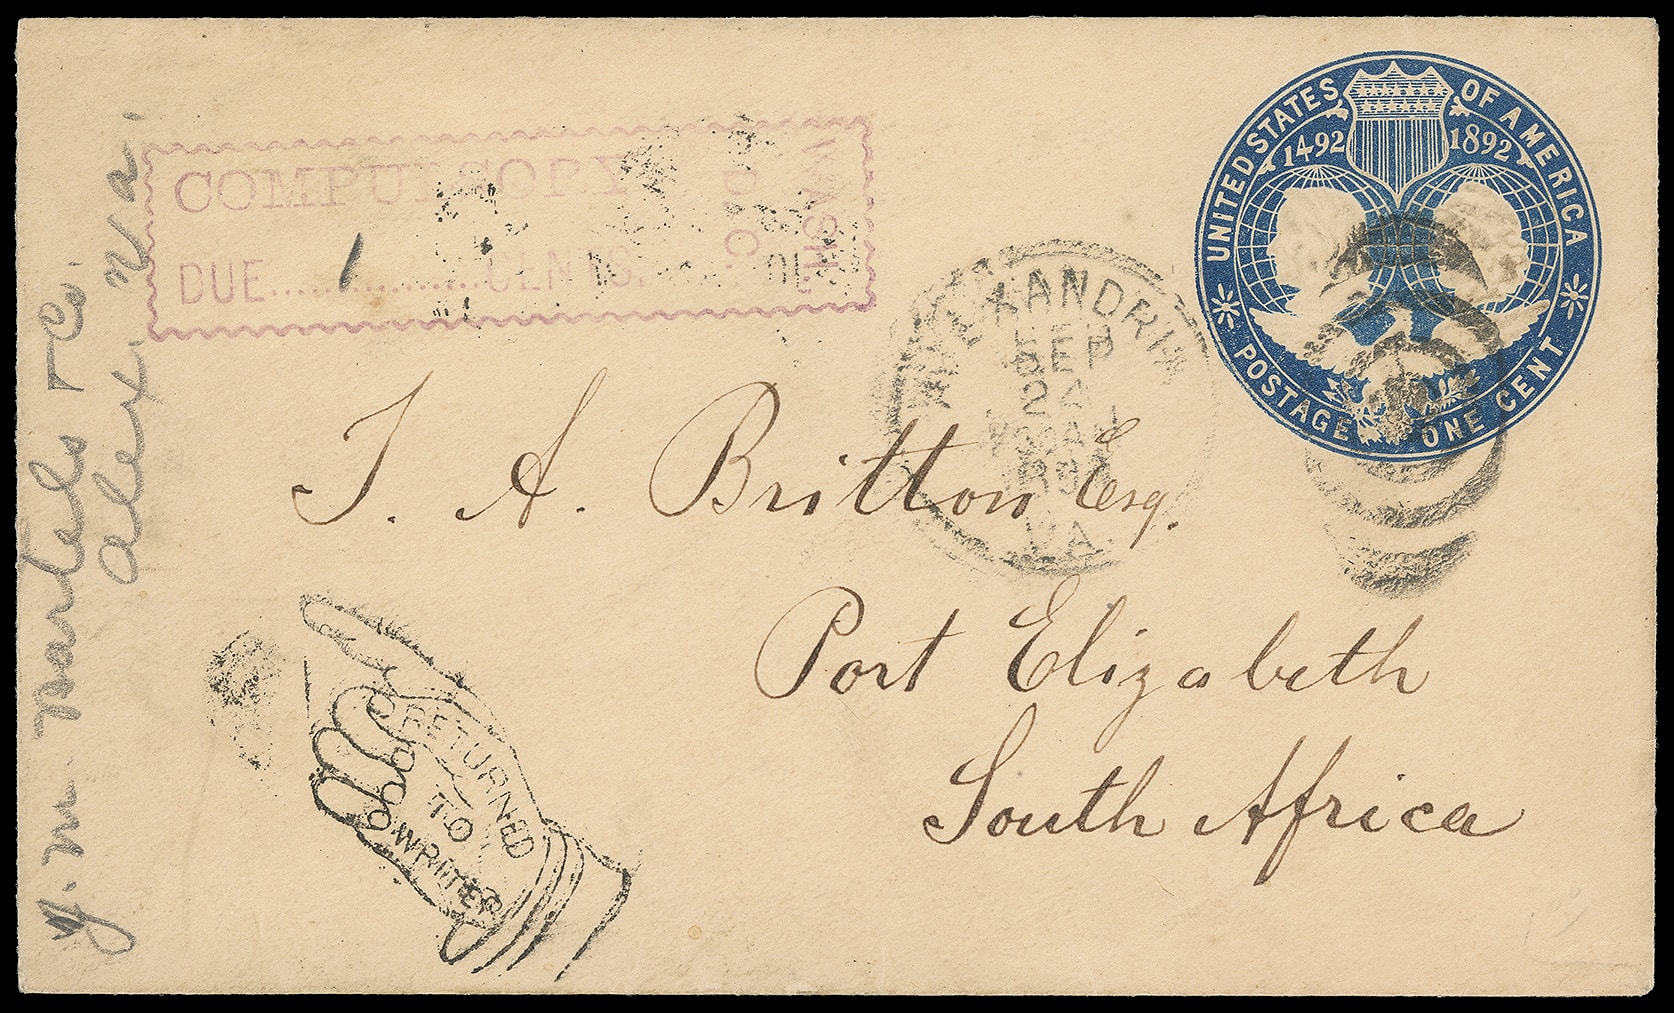 UNITED STATES OF AMERICA
1492 1892
POSTAGE ONE CENT
COMPULSORY
DUE 1 CENTS.
WASH.
D.C.
ALEXANDRIA
SEP
24
VA.
J. A. Britton Esq.
Port Elizabeth
South Africa
RETURNED
TO
WRITER
Alex. Va.